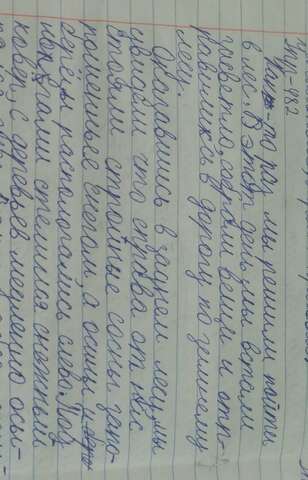 упр-482
Как-то раз мы решили пойти
в лес. В этот день мы встали
засветло, собрали вещи и отп-
равились в дорогу по зимнему
лесу.
Оказавшись в зимнем лесу, мы
увидели что справа от нас
стояли стройные сосны запо-
рошенные снегом а осины и
берёзы распологались слева. Под
ногами стелился снежный
ковёр, с деревьев медленно осы-